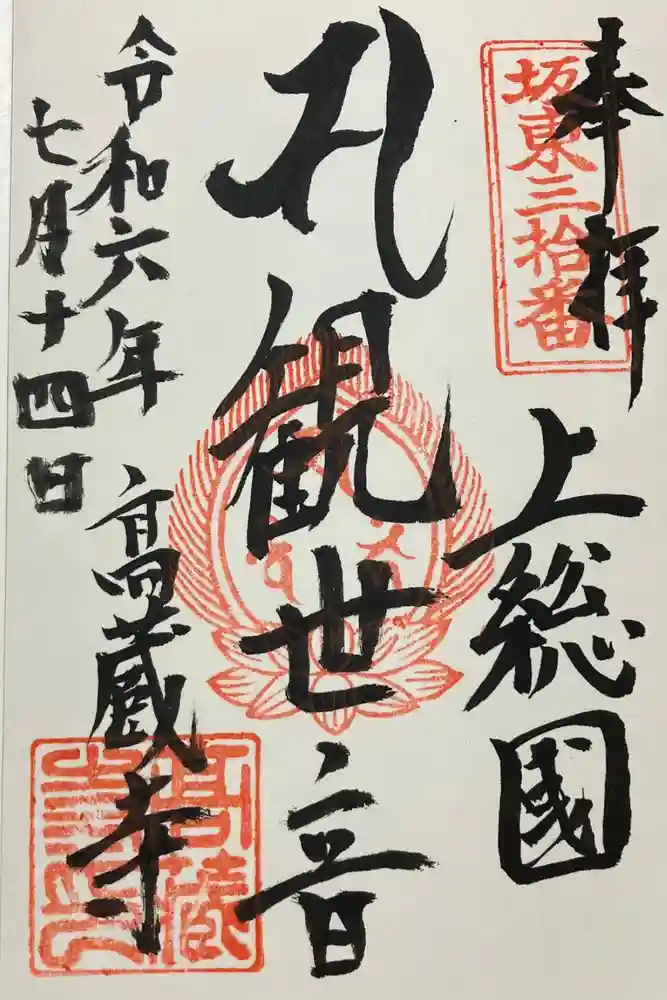 奉拝
坂東三拾番
上総國
聖観世音
令和六年
七月十四日
高蔵寺